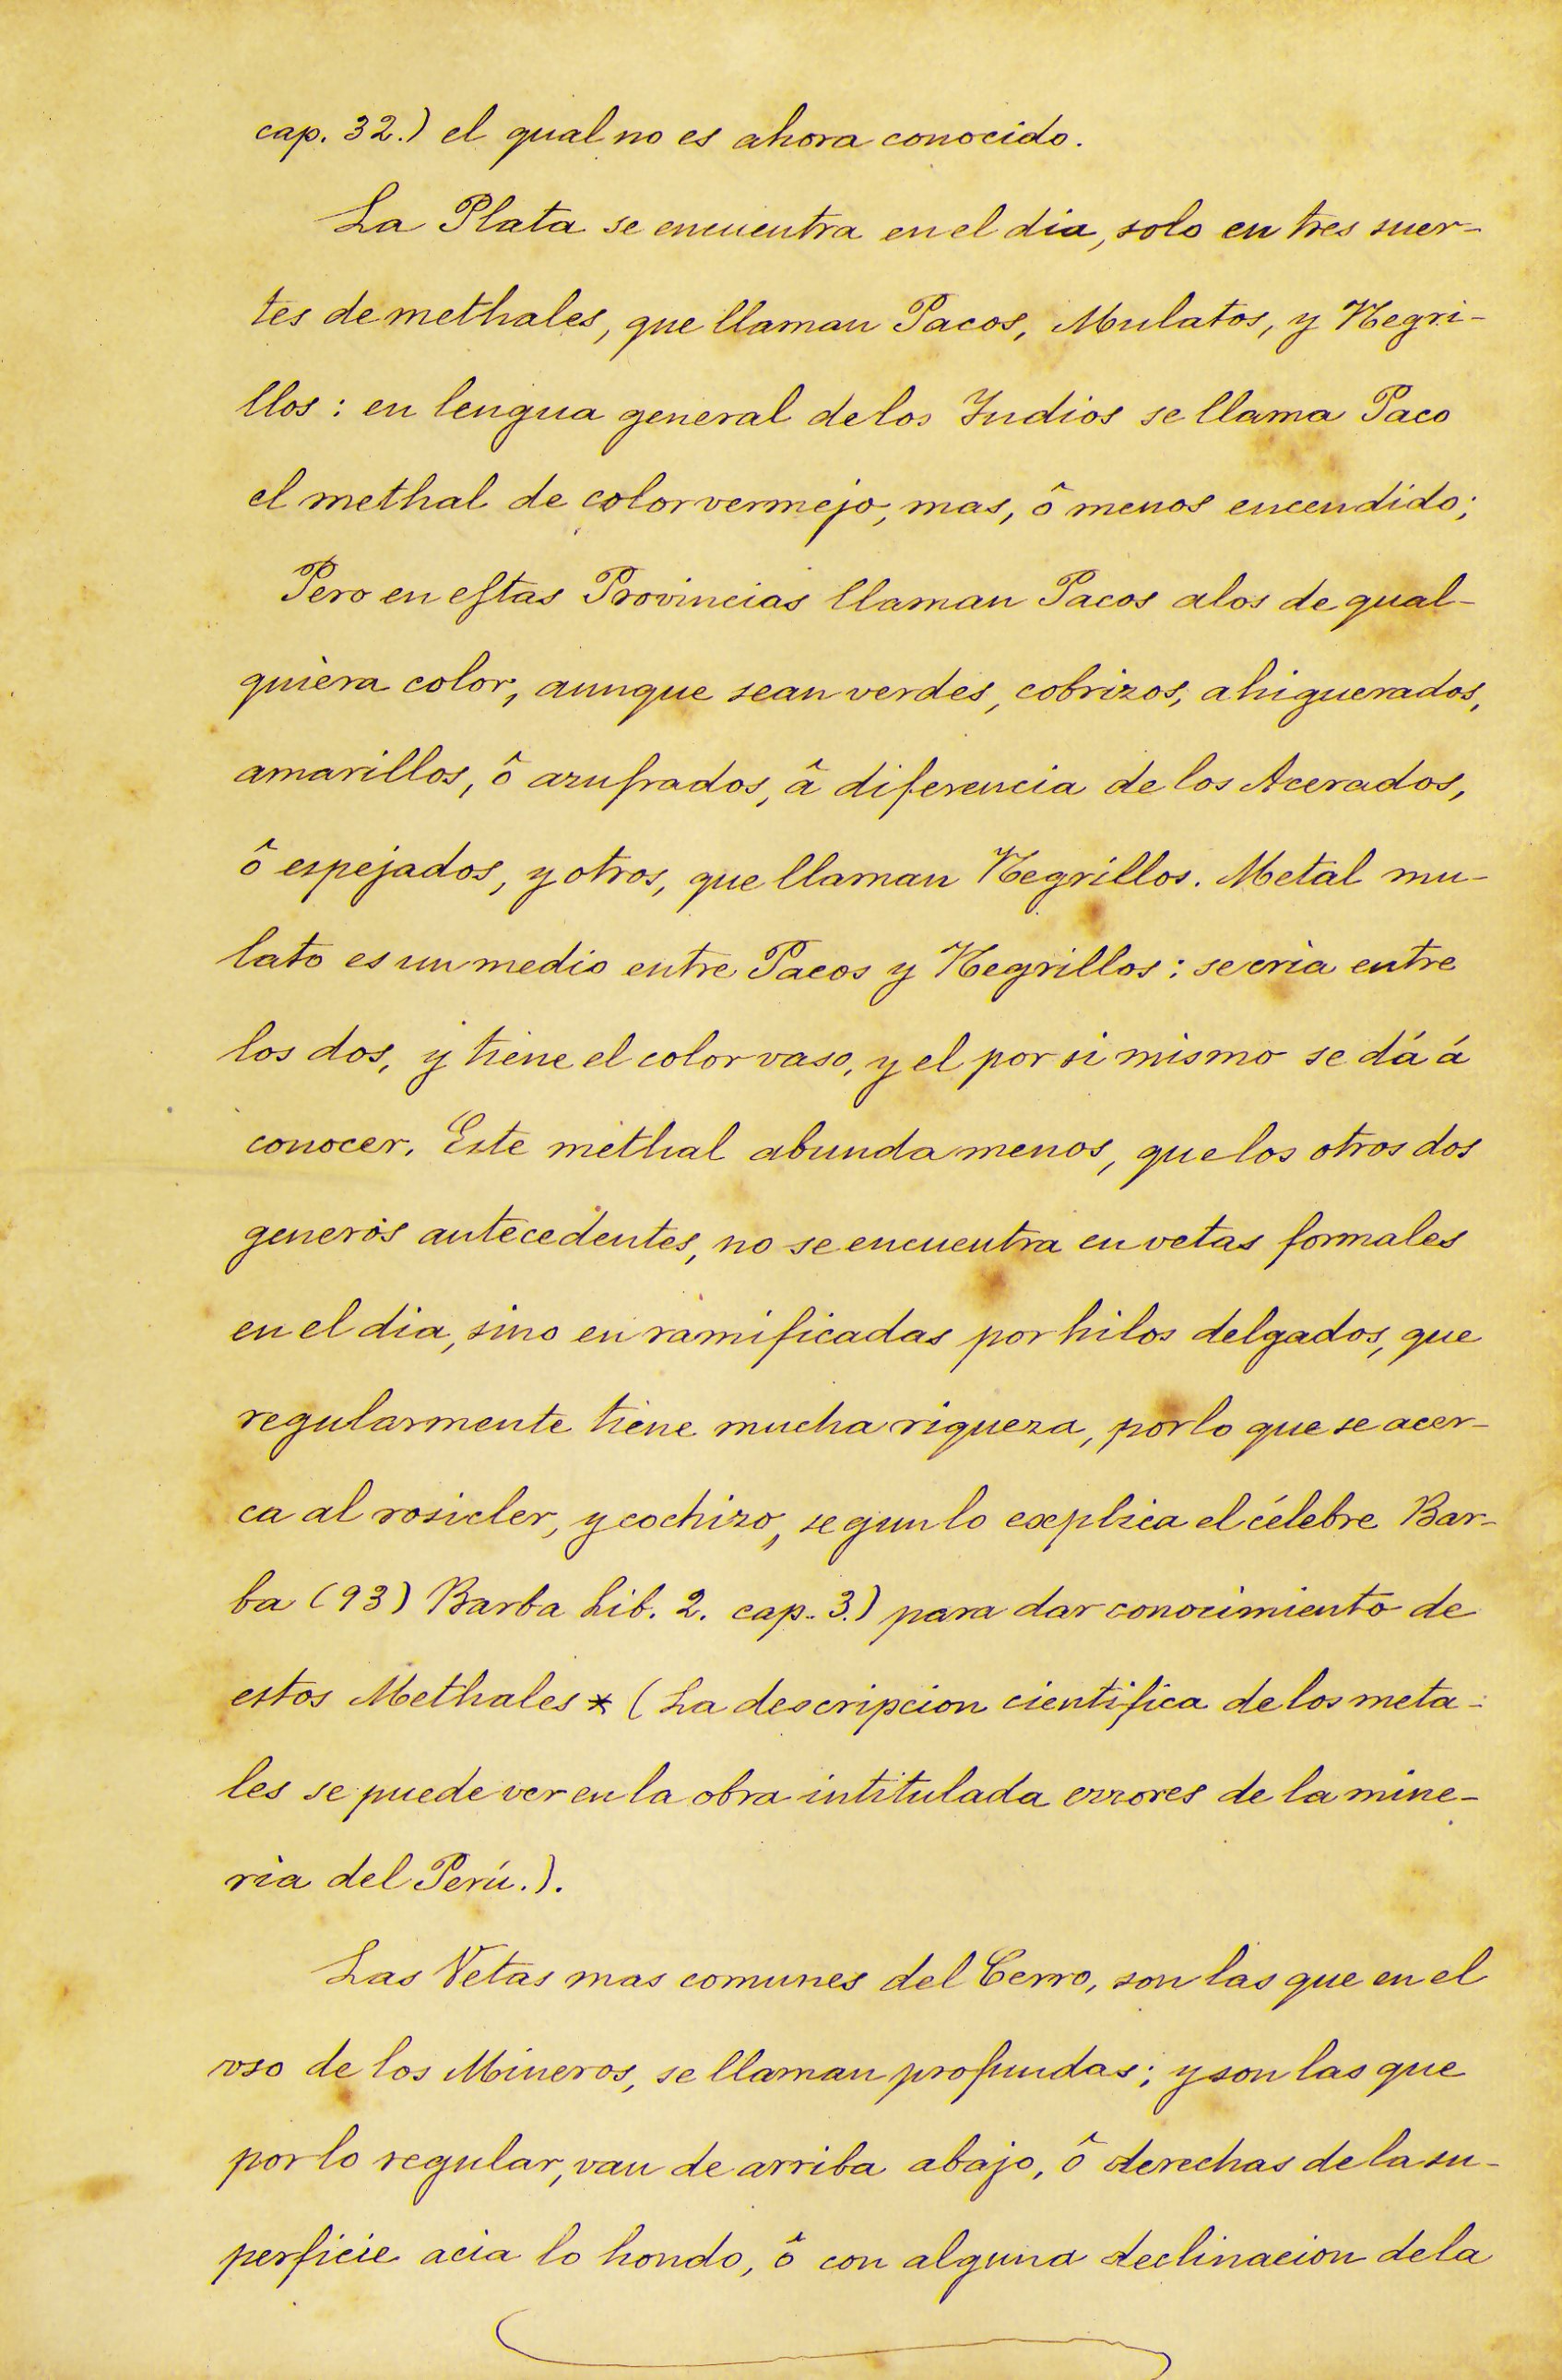 cap. 32.) el qual no es ahora conocido.
La Plata se encuentra en el dia, solo en tres suer-
tes de methales, que llaman Pacos, Mulatos, y Negri-
llos: en lengua general de los Indios se llama Paco
el methal de color vermejo, mas, ô menos encendido;
Pero en eſtas Provincias llaman Pacos alos de qual-
quièra color, aunque sean verdes, cobrizos, ahiguerados,
amarillos, ô azufrados, â diferencia de los Acerados,
ô espejados, y otros, que llaman Negrillos. Metal mu-
lato es un medio entre Pacos y Negrillos: se crìa entre
los dos, y tiene el color vaso, y el por si mismo se dá á
conocer. Este methal abunda menos, que los otros dos
generos antecedentes, no se encuentra en vetas formales
en el dia, sino en ramificadas por hilos delgados, que
regularmente tiene mucha riqueza, por lo que se acer-
ca al rosicler, y cochizo, segun lo explica el célebre Bar-
ba (93) Barba Lib. 2. cap. 3.) para dar conocimiento de
estos Methales * (La descripcion cientifica de los meta-
les se puede ver en la obra intitulada errores de la mine-
rìa del Perú.).
Las Vetas mas comunes del Cerro, son las que en el
vso de los Mineros, se llaman profundas; y son las que
por lo regular, van de arriba abajo, ô derechas de la su-
perficie acia lo hondo, ô con alguna declinacion dela